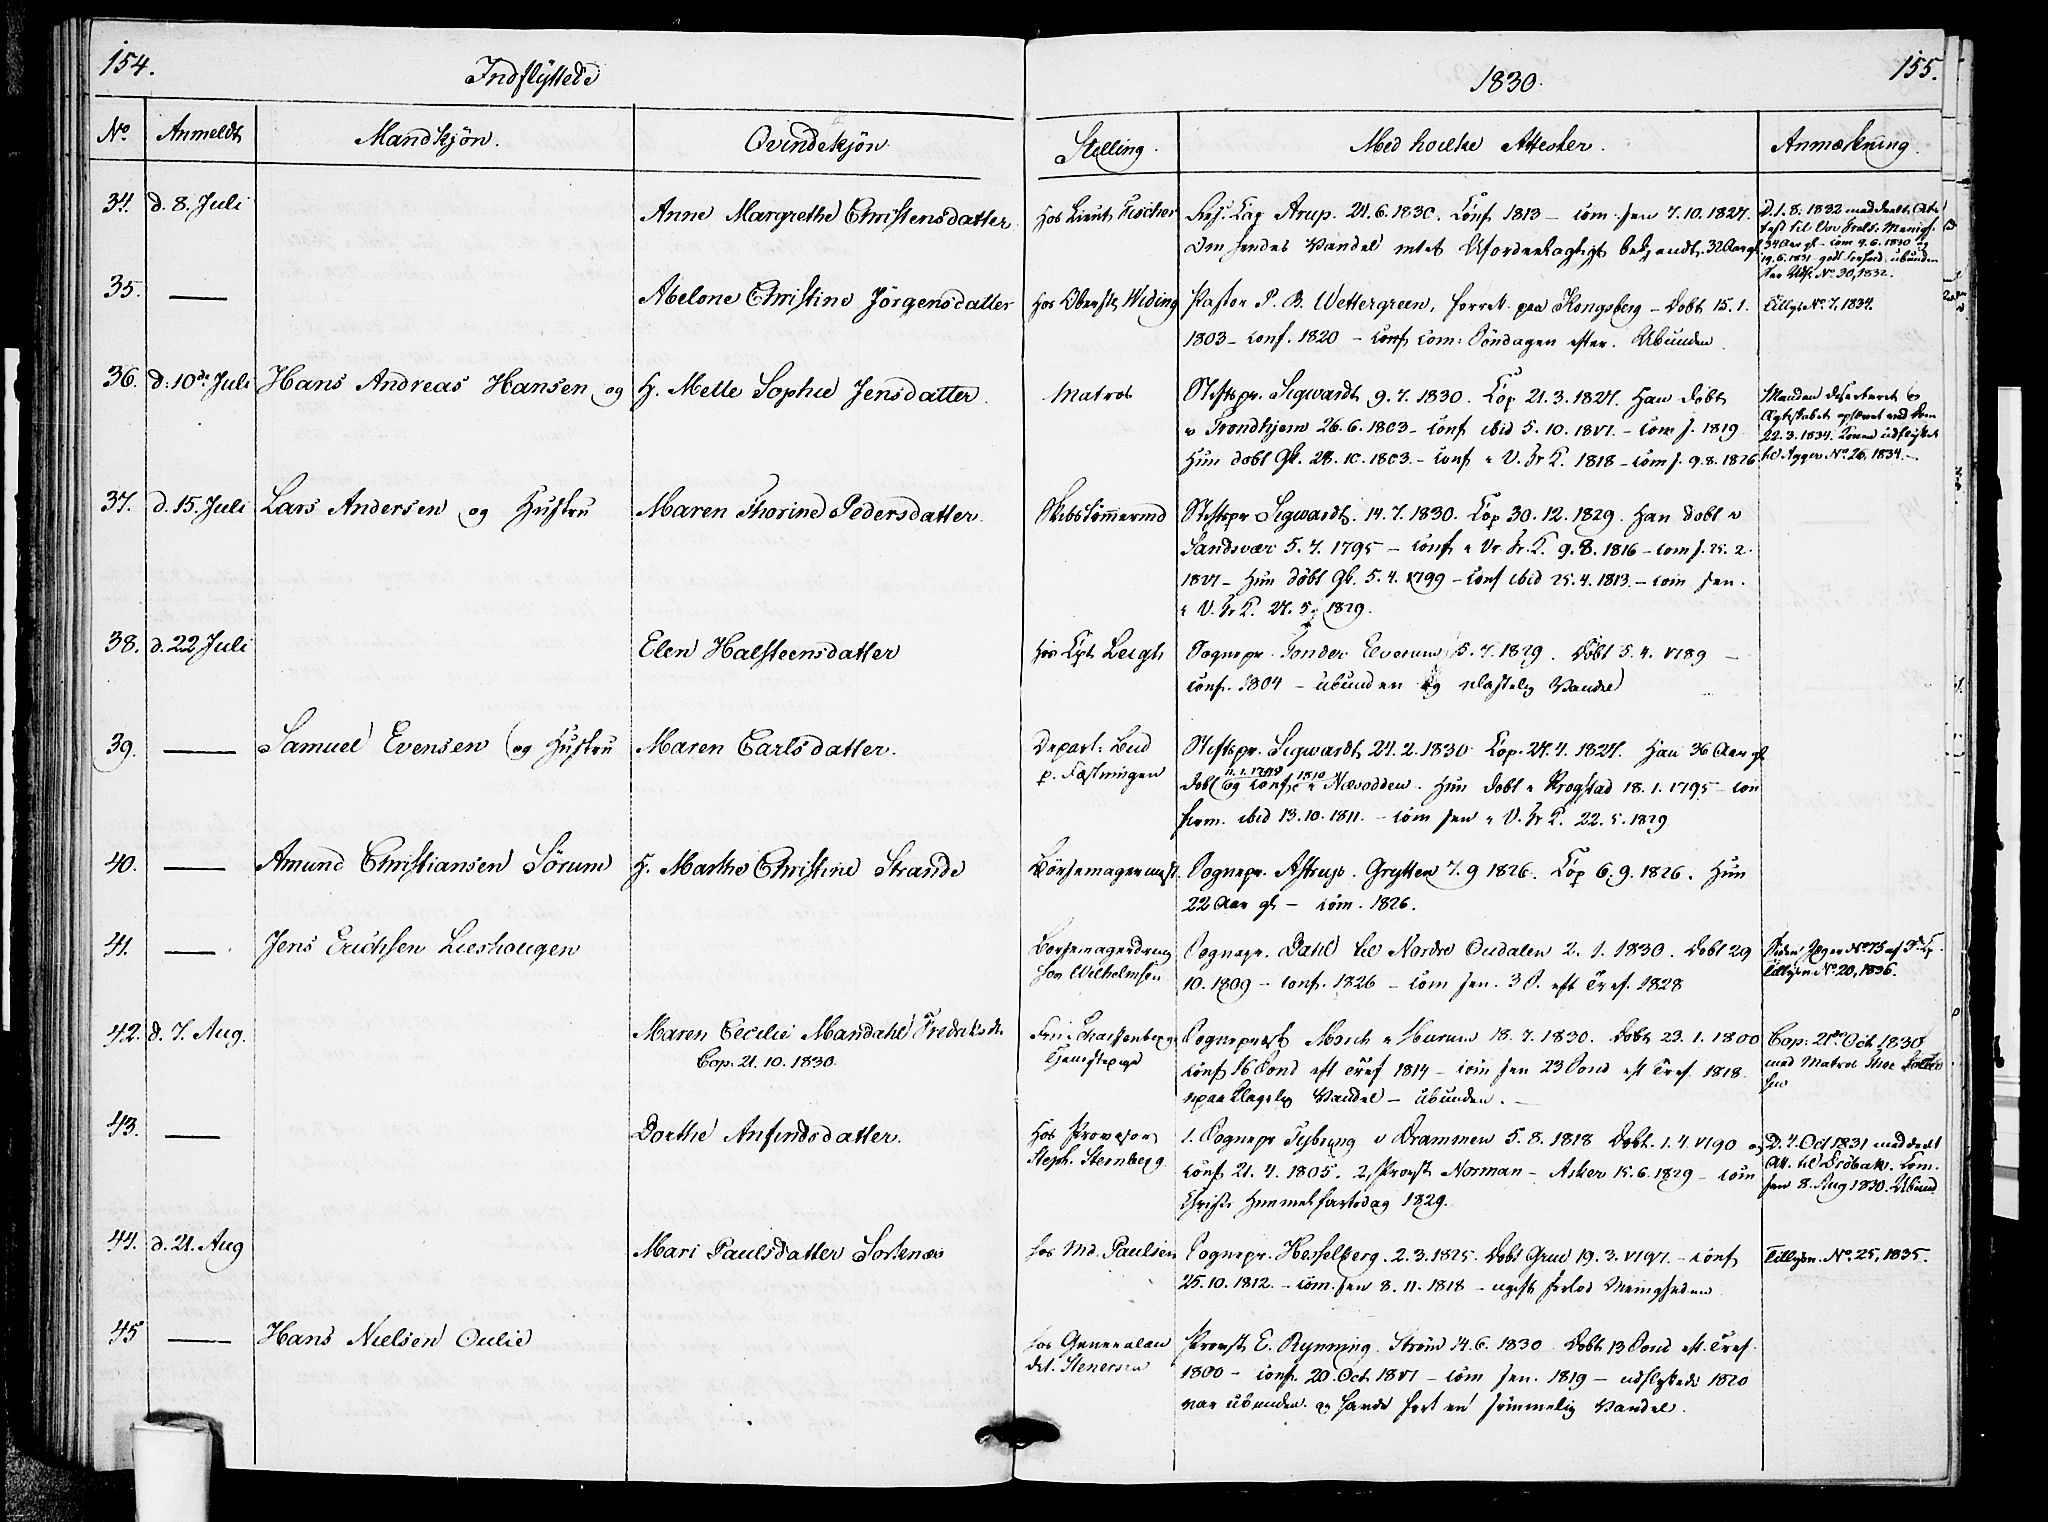 154.
Indflyttede
1830.
155.
No. Anmeldt Mandkjøn. Qvindekjøn. Stilling. Med hvilke Attester. Anmærkning.
34. d. 8. Juli Anne Margrethe Christensdatter Hos Lieut Fischer Res. Cap Arup. 21.6.1830. Conf 1813 – com. sen 7.10.1827.
Om hendes Vandel intet Ufordeelagtigt bekjendt. 32 Aar gl
D. 1.8.1832 meddeelt Attest til Vor Frels: Menigh.
34 Aar gl – com 9.6.1830 og
19.6.1831 godt Forhold. ubunden
See Udfl. No. 30, 1832.
35. — Abelone Christine Jörgensdatter Hos Oberst Weding Pastor P. B. Wettergreen, forret. paa Kongsberg – Döbt 15.1.
1803 – conf. 1820 – com: Söndagen efter. Ubunden
Tillyst No. 7, 1834.
36. d. 10de Juli Hans Andreas Hansen og H. Mette Sophie Jensdatter. Matros Stiftspr. Sigwardt 9.7.1830. Cop 21.3.1827. Han döbt
i Trondhjem 26.6.1803 – conf ibid 5.10.1817. – com s. 1819
Hun döbt Gk. 28.10.1803. – conf i V. Fr K. 1818 – com s. 9.8.1826
Manden deserteret og
Ægteskabet ophævet ved Dom
22.3.1834. Konen udflyttet
til Agger No. 26, 1834. –
37. d. 15. Juli Lars Andersen og Hustru Maren Thorine Pedersdatter. Skibstömmermd Stiftspr Sigwardt. 14.7.1830. Cop 30.12.1829. Han döbt i
Sandsvær 5.7.1795 – conf i Vr. Fr. K. 9.8.1816 – com s. 25.2.
1817 – Hun döbt Gk. 5.4.1799 – conf ibid 25.4.1813. – com sen.
i V. Fr K. 27.5. 1829.
38. d. 22 Juli Elen Halsteensdatter Hos Cpt Leigh Sognepr. Tonder Elverum 5.7.1829. Döbt 5.4.1789 –
conf. 1804 – ubunden og ulastelig Vandel
39. — Samuel Evensen og Hustru Maren Carlsdatter. Depart: Bud
p. Fæstningen
Stiftspr. Sigwardt 24.2.1830 Cop. 27.4.1827. Han 36 Aar gl
döbt og conf. 1810 i Næsodden. Hun döbt i Krogstad 18.1.1795 – con
firm. ibid 13.10.1811. – com sen i V. Fr K. 22.5.1829
40. — Amund Christiansen Sörum H. Marthe Christine Strande Börsemagermst. Sognepr. Astrup. Grytten 7.9 1826. Cop 6.9.1826. Hun
22 Aar gl – com. 1826.
41. — Jens Erichsen Lieshaugen Börsemagerdreng
hos Wilhelmsen
Sognepr. Dahl til Nordre Oudalen 2.1.1830. Döbt 29
10.1809 – conf. 1826 – com sen. 3 S. eft Tref. 1828
Tillyst No. 20, 1836.
42. d. 7. Aug. Maren Cecilie Mandahl Fredriksdr.
Cop: 21.10.1830.
Tjenestepige
Sogneprest Morch i Hurum 18.7.1830. Döbt 23.1.1800
conf 16 Sønd eft Tref 1814 – com sen 23 Sønd eft Tref. 1818.
upaaklagelig Vandel – ubunden. –
Cop: 21de Oct 1830
med Matros
43. — Dorthe Anfindsdatter. Hos Provisor
Steph. Steinberg
1. Sognepr Tybring i Drammen 5.8.1818 Döbt. 1.4.1790 og
conf 21.4.1805. 2, Provst Norman – Asker 15.6.1829 – com
Christi Himmelfartsdag 1829.
D. 4 Oct 1831 meddeelt
Att. til Dröbak. Com.
sen 8. Aug 1830. Ubund
44. d. 21. Aug Mari Paulsdatter Sortenæs hos Md. Paulsen Sognepr. Hesselberg. 2.3.1825. Döbt Grue 19.3.1797. – conf
25.10.1812. – com. sen 8.11.1818 – ugift forlod Menigheden
Tillyst. No. 25, 1835.
45 — Hans Nielsen Oulie hos Generalau
dit. Stenersen
Provst E. Rynning. Ström 14.6.1830 Döbt 13 Sønd eft. Tref.
1800 – conf. 20. Oct 1817 – com sen. 1819 – udflyttede 1820
var ubunden og havde fört en sömmelig Vandel.